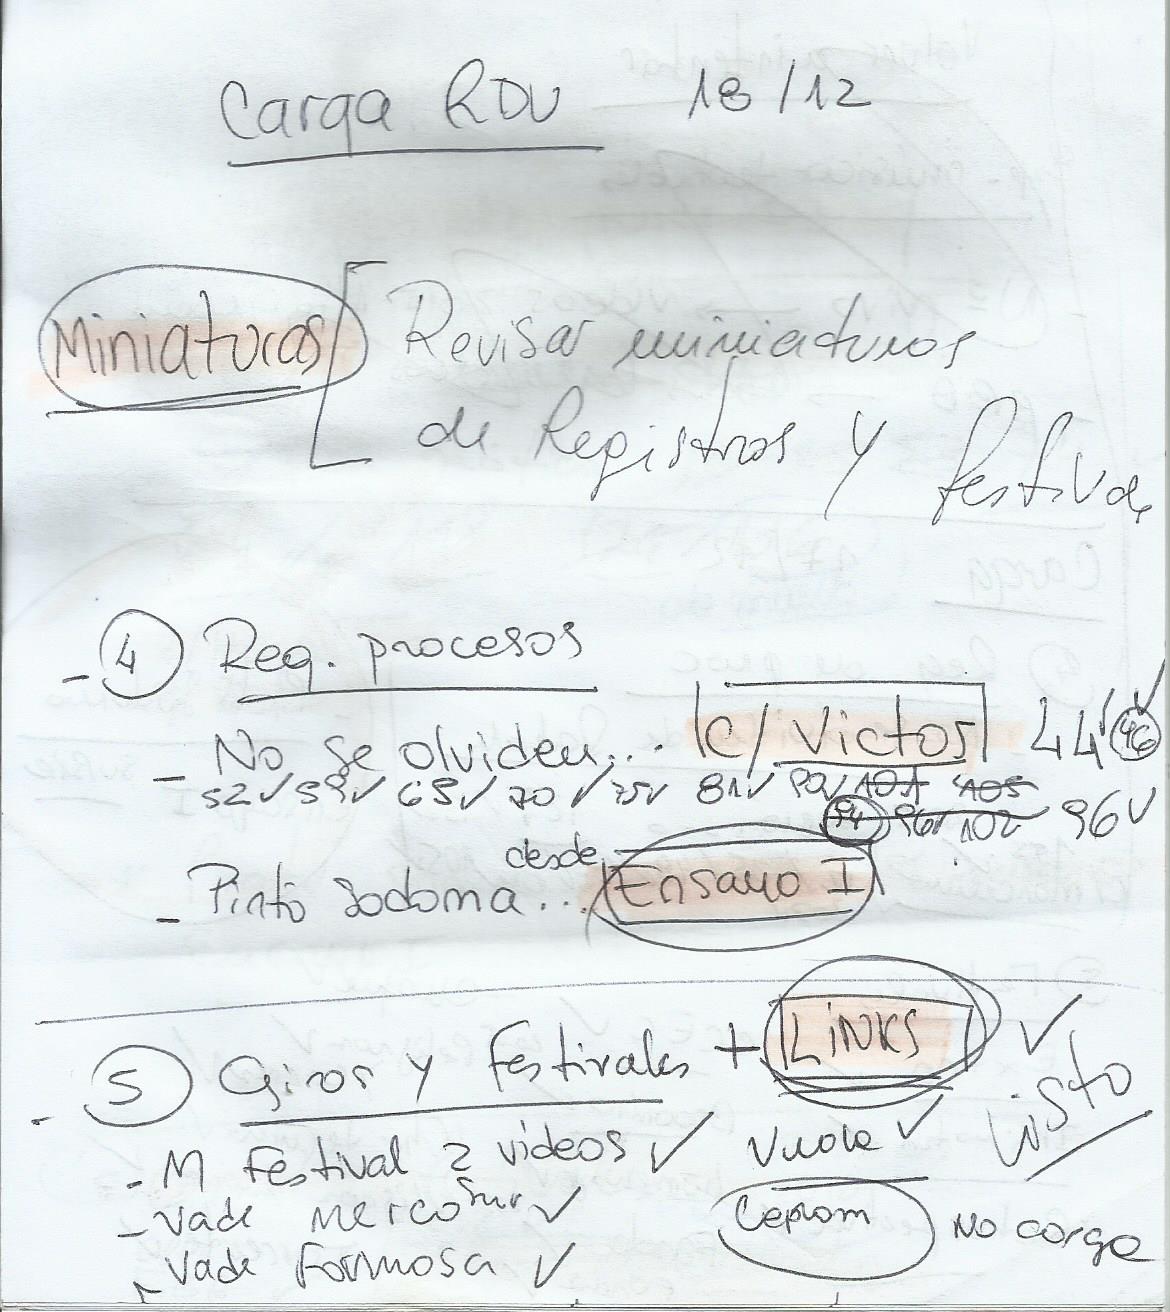 Carga RDU 18/12
Miniaturas
Revisar miniaturas
de Registros y festivales
- 4 Reg. procesos
- No se olviden... c/ Victor 44 ✓ 46 ✓
52 ✓ 59 ✓ 65 ✓ 70 ✓ 75 ✓ 81 ✓ 90 ✓ 101 105
94 96 102 96 ✓
- Pinto Sodoma... desde Ensayo I
- 5 Giras y festivales + LINKS ✓
Visto
- M Festival 2 videos ✓
Vuala ✓
- Vade Mercosur ✓
Ceprom No carga
- Vade Formosa ✓